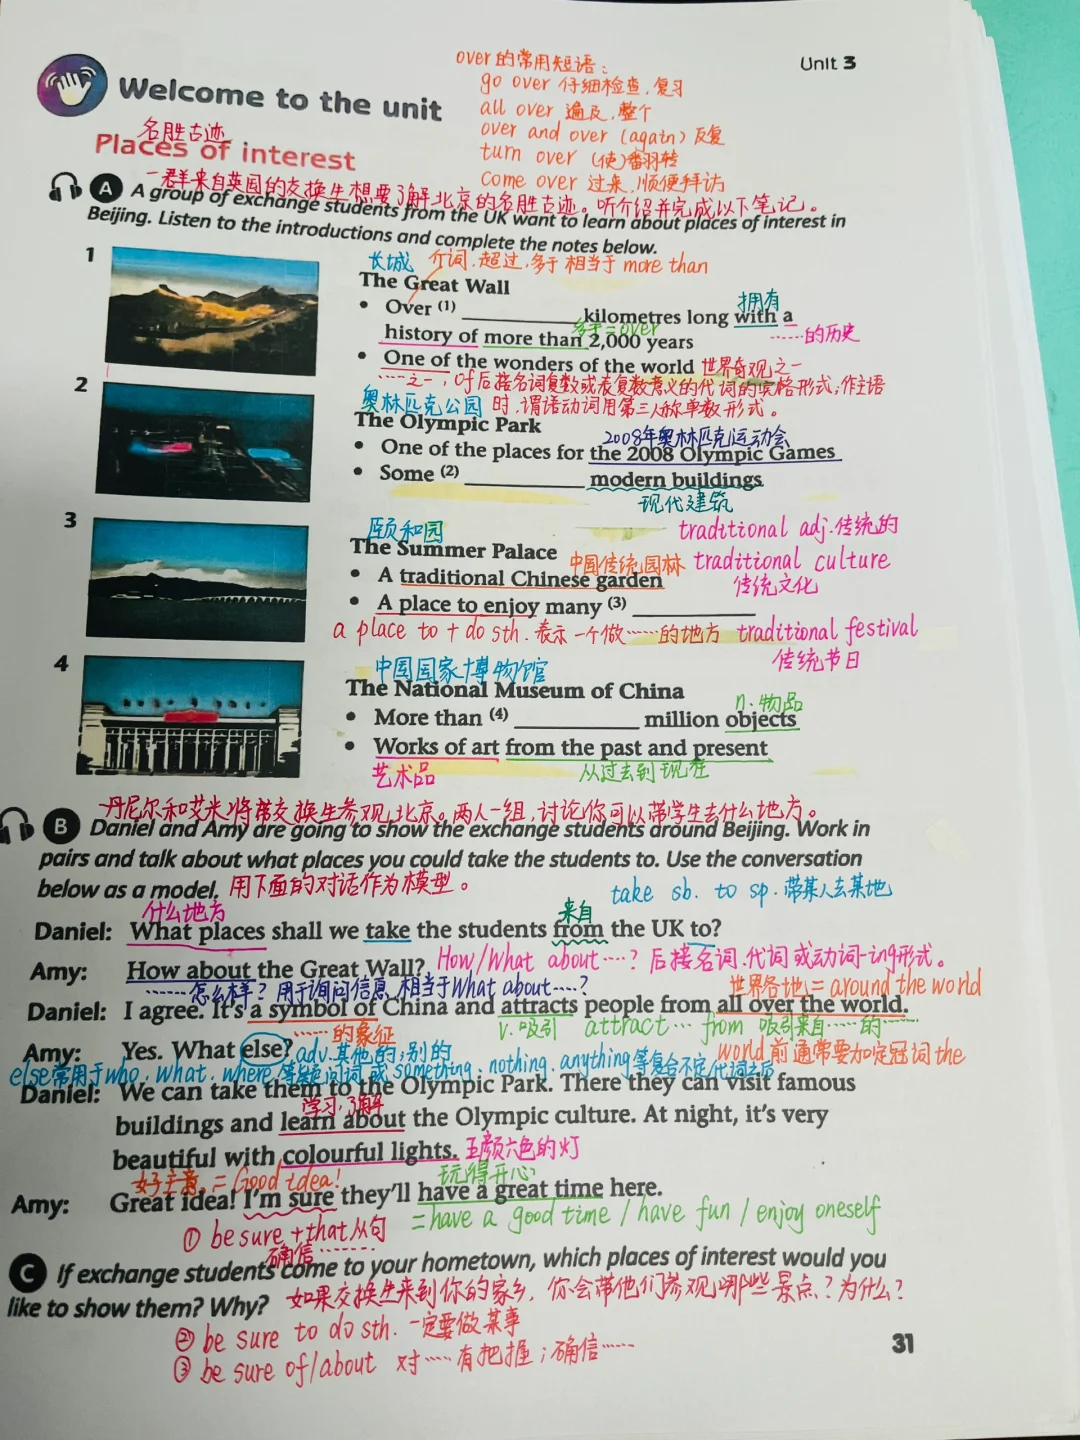 Unit 3
over的常用短语:
go over 仔细检查,复习
all over 遍及,整个
over and over (again) 反复
turn over (使)翻转
come over 过来,顺便拜访
Welcome to the unit
名胜古迹
Places of interest
一群来自英国的交换生想要了解北京的名胜古迹。听介绍并完成以下笔记。
A A group of exchange students from the UK want to learn about places of interest in
Beijing. Listen to the introductions and complete the notes below.
1
长城 介词,超过,多于 相当于 more than
The Great Wall
• Over (1) __________ kilometres long with a
拥有
history of more than 2,000 years
多于=over
……的历史
• One of the wonders of the world 世界奇观之一
……之一,of后接名词复数或表复数意义的代词的宾格形式;作主语
时,谓语动词用第三人称单数形式。
2
奥林匹克公园
The Olympic Park
2008年奥林匹克运动会
• One of the places for the 2008 Olympic Games
• Some (2) __________ modern buildings
现代建筑
3
颐和园
The Summer Palace
traditional adj.传统的
中国传统园林 traditional culture
• A traditional Chinese garden
传统文化
• A place to enjoy many (3) __________
a place to + do sth. 表示一个做……的地方 traditional festival
传统节日
4
中国国家博物馆
The National Museum of China
n.物品
• More than (4) __________ million objects
• Works of art from the past and present
艺术品 从过去到现在
丹尼尔和艾米将带交换生参观北京。两人一组,讨论你可以带学生去什么地方。
B Daniel and Amy are going to show the exchange students around Beijing. Work in
pairs and talk about what places you could take the students to. Use the conversation
below as a model. 用下面的对话作为模型。
take sb. to sp. 带某人去某地
什么地方 来自
Daniel: What places shall we take the students from the UK to?
Amy: How about the Great Wall? How/What about……? 后接名词.代词或动词-ing形式。
……怎么样?用于询问信息,相当于What about……? 世界各地=around the world
Daniel: I agree. It's a symbol of China and attracts people from all over the world.
……的象征 v.吸引 attract… from 吸引来自……的……
Amy: Yes. What else? adv.其他的;别的 world前通常要加定冠词the
else常用于who、what、where等疑问词或something、nothing、anything等复合不定代词之后
Daniel: We can take them to the Olympic Park. There they can visit famous
学习,了解
buildings and learn about the Olympic culture. At night, it's very
beautiful with colourful lights. 五颜六色的灯
好主意。=Good idea! 玩得开心
Amy: Great idea! I'm sure they'll have a great time here.
=have a good time / have fun / enjoy oneself
① be sure +that从句
确信……
C If exchange students come to your hometown, which places of interest would you
like to show them? Why? 如果交换生来到你的家乡,你会带他们参观哪些景点?为什么?
② be sure to do sth. 一定要做某事
③ be sure of/about 对……有把握;确信……
31